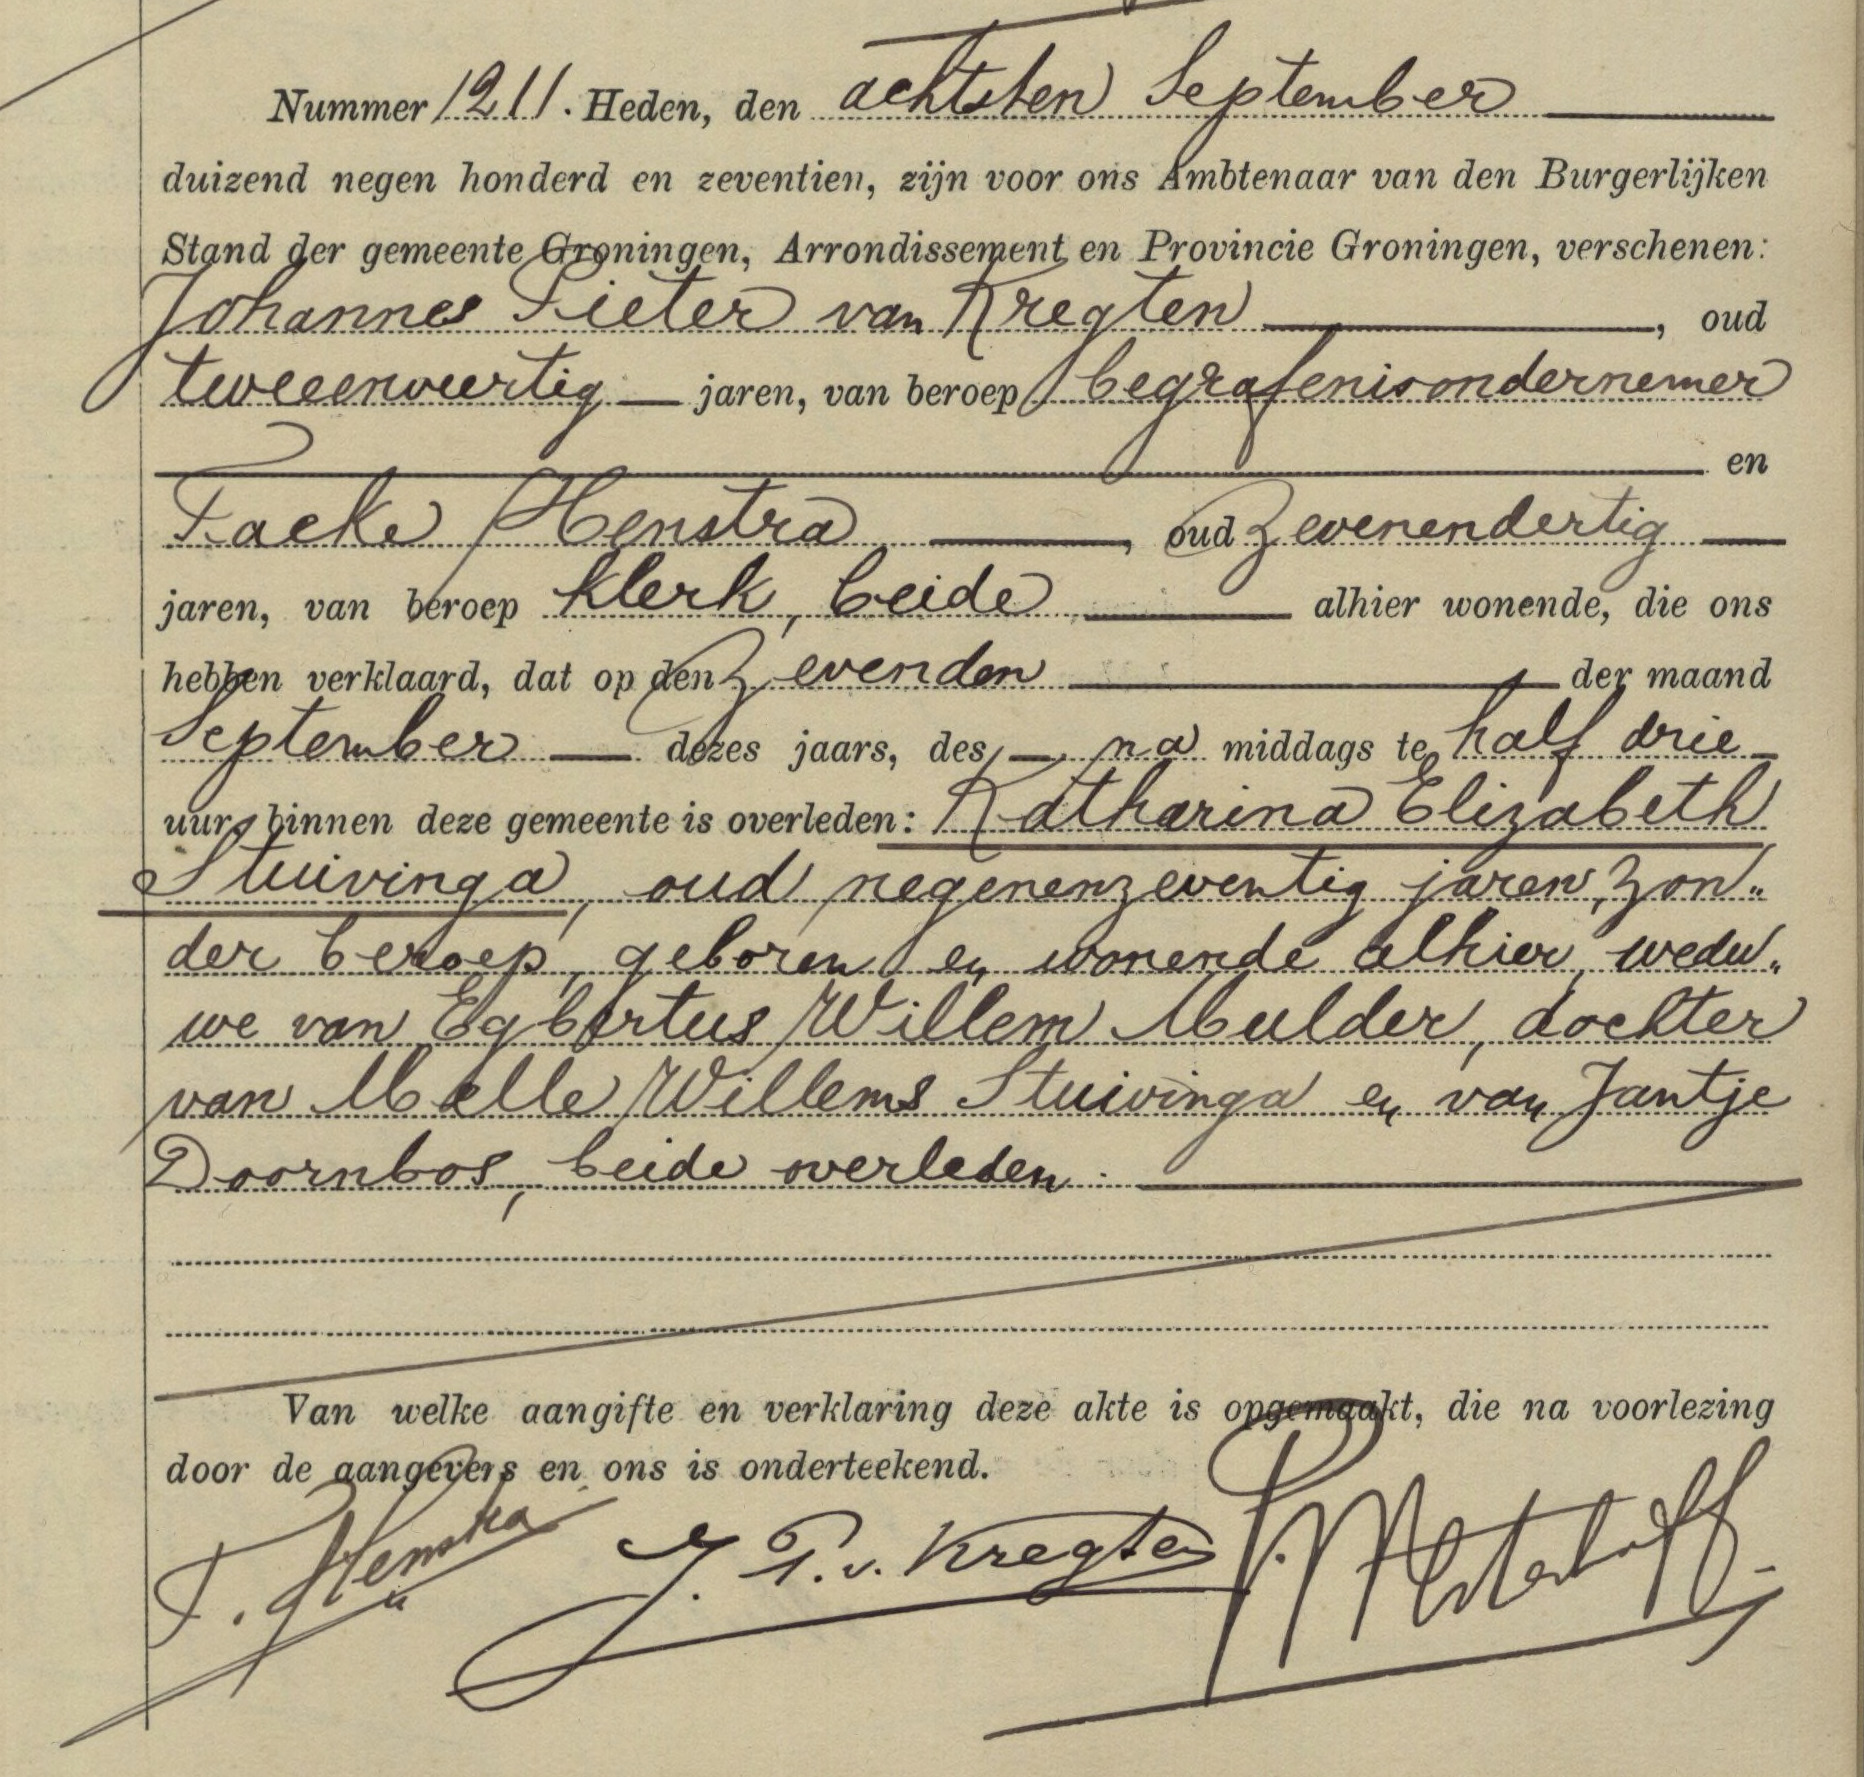 Nummer 1211. Heden, den achtsten September
duizend negen honderd en zeventien, zijn voor ons Ambtenaar van den Burgerlijken
Stand der gemeente Groningen, Arrondissement en Provincie Groningen, verschenen:
Johannes Pieter van Kregten, oud
tweeenveertig jaren, van beroep begrafenisondernemer
en
Facke Henstra, oud zevenendertig
jaren, van beroep klerk, beide alhier wonende, die ons
hebben verklaard, dat op den zevenden der maand
September dezes jaars, des na middags te half drie
uur binnen deze gemeente is overleden: Katharina Elizabeth
Stuivinga, oud negenenzeventig jaren, zon„
der beroep, geboren en wonende alhier, wedu„
we van Egbertus Willem Mulder, dochter
van Melle Willems Stuivinga en van Jantje
Doornbos, beide overleden.
Van welke aangifte en verklaring deze akte is opgemaakt, die na voorlezing
door de aangevers en ons is onderteekend.
F. Henstra J. P. v. Kregten